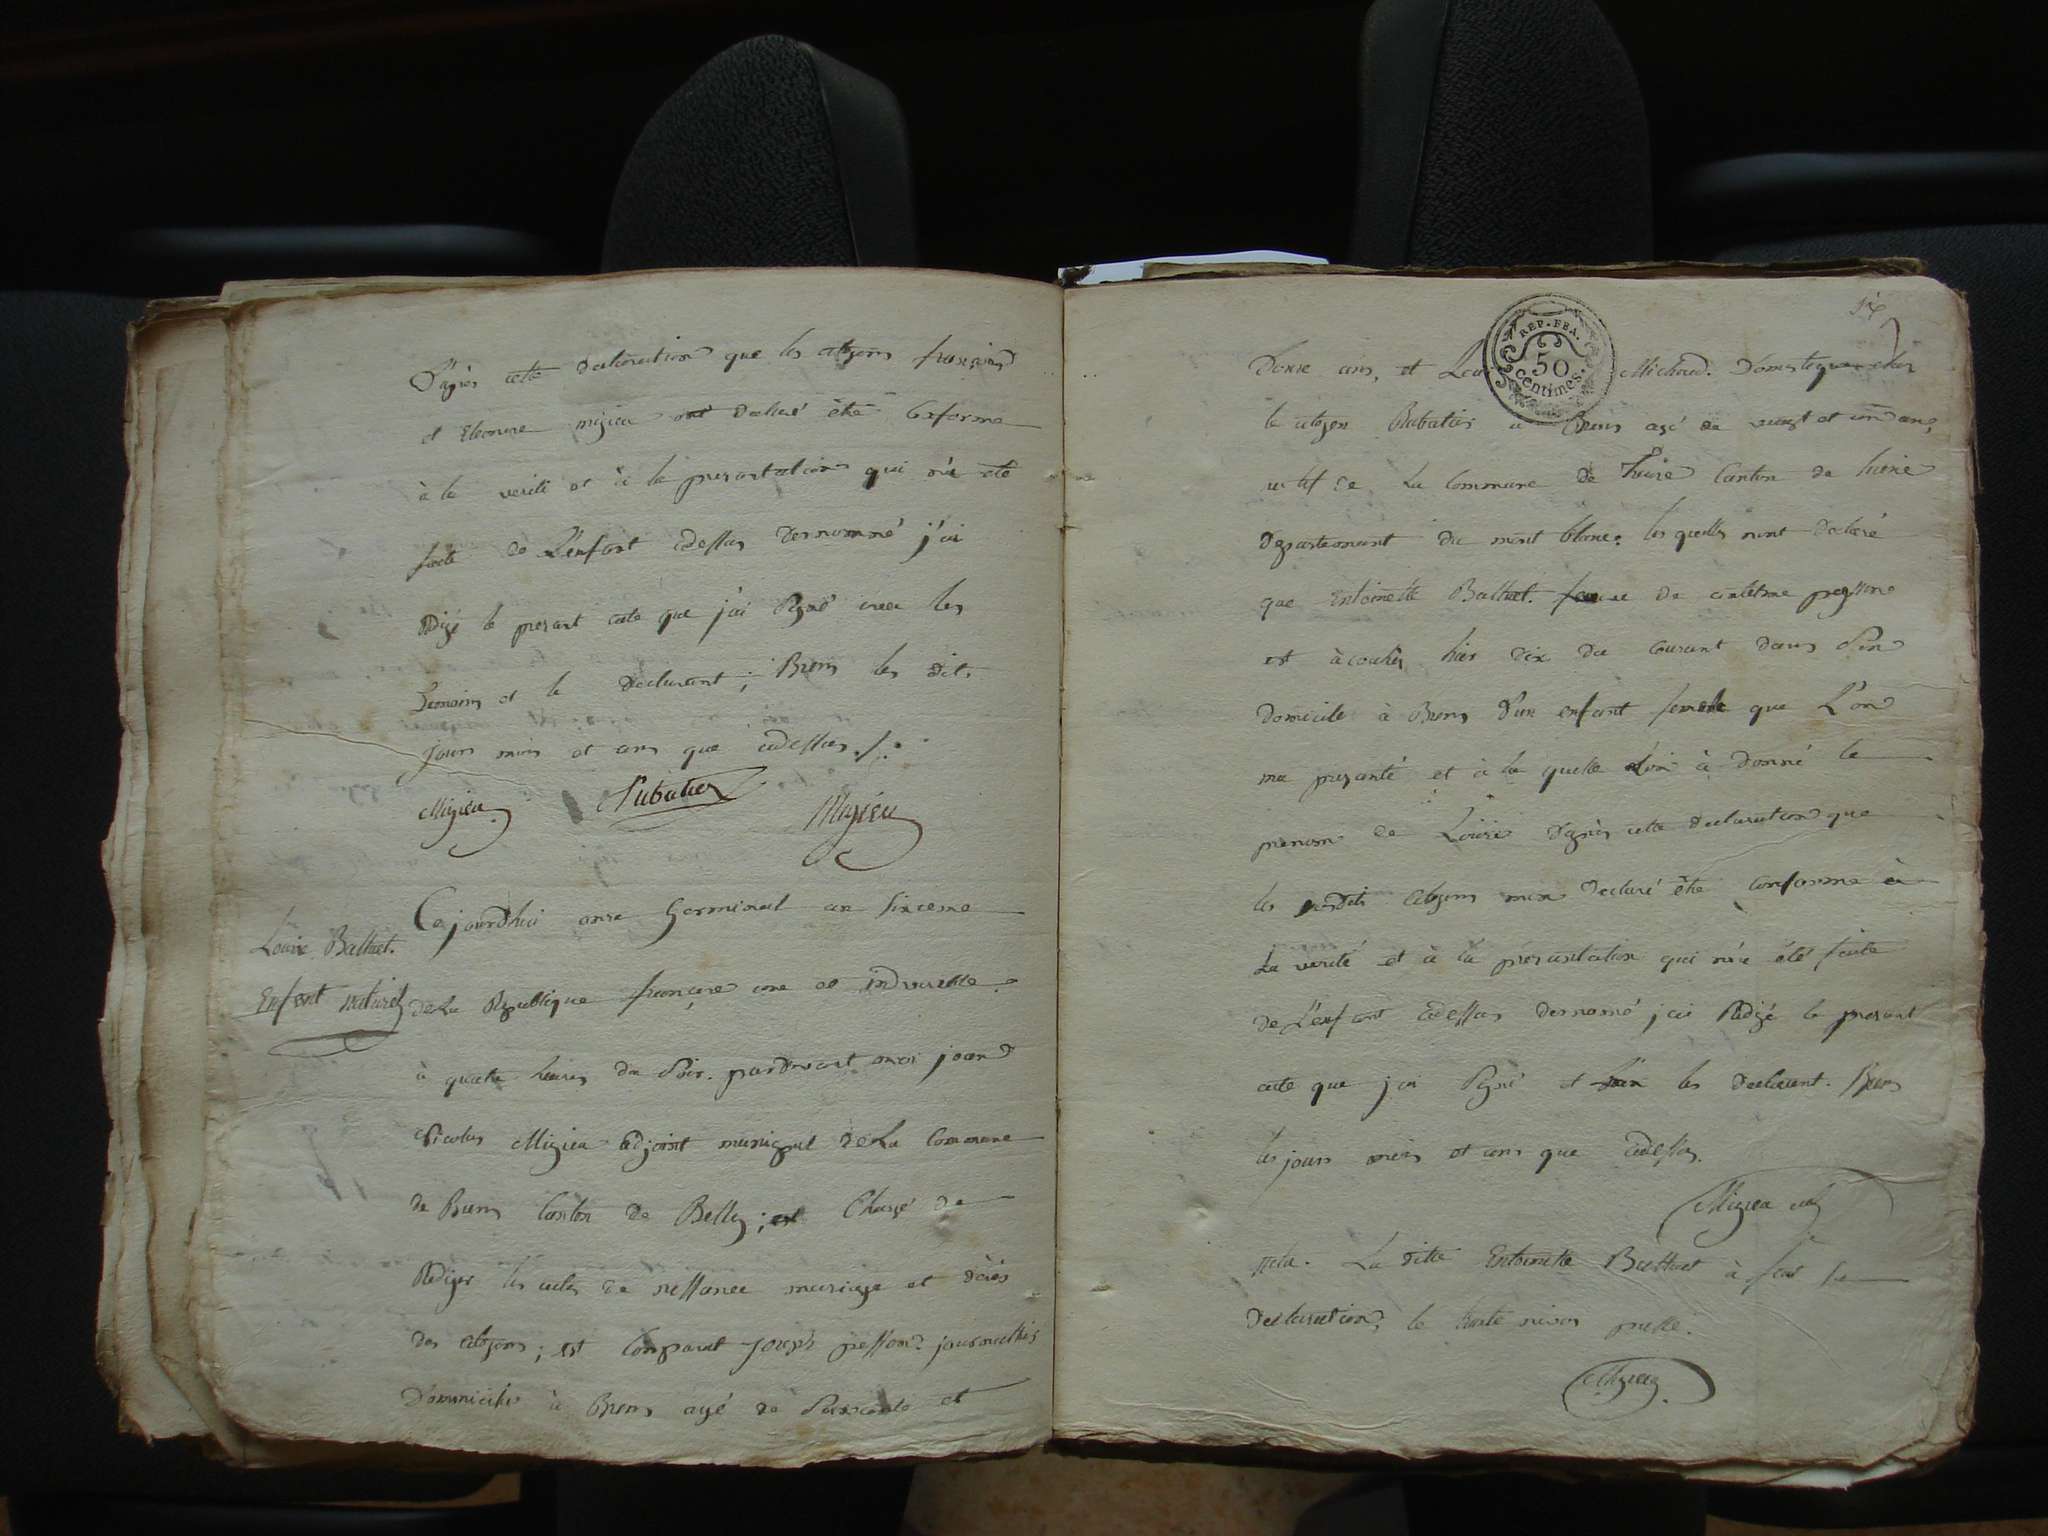 D'après cette declaration que les citoyens françois
et Eleonore migieu ont declaré étre Conforme
à la verité et à la presentation qui m'a eté
faite de L'enfant cidessus dennomné j'ai
Rédigé le present acte que j'ai Signé avec les
temoins et le declarant; Brens les dits
jours mois et ans que cidessus ./.
Migieu Rubatier Migieu
Louise Balthet.
Enfant naturel
Ce jourd'hui onze Germinal an Sixieme
de La Republique françoise une et indivisible
à quatre heures du Soir. pardevant moi jean
Nicolas Migieu adjoint municipal de La Commune
de Brens Canton de Belley; est Chargé de
Rediger les actes de nessance mariage et décés
des citoyens; est Comparut joseph pesson journallier
Domicilié à Brens agé de Soixante et
six
REP. FRA.
50
Centimes.
Donze ans, et Michaud. Domestique chez
le citoyen Rubatier a Brens agé de vingt et un ans,
natif de La Commune de hiere Canton de hiere
Departement du mont blanc; les quells mont declaré
que Entoinette Balthet. de anthelme pesson
est àcouchée hier dix du courant dans Son
Domicile à Brens d'un enfant femele que L'on
ma presanté et à la quelle L'on à donné le
prenom de Louise D'après cette declaration que
les susdits Citoyens mon declaré étre conforme à
La verité et à la présantation qui m'a été faite
de L'enfant cidessus dennomé j'ai Rédigé le present
acte que j'ai Signé et non les declarant. Brens
les jours mois et ans que cidessus.
Migieu adj
nota. La ditte Entoinette Balthet à fait sa
declaration, le trente nivos passé.
Migieu.